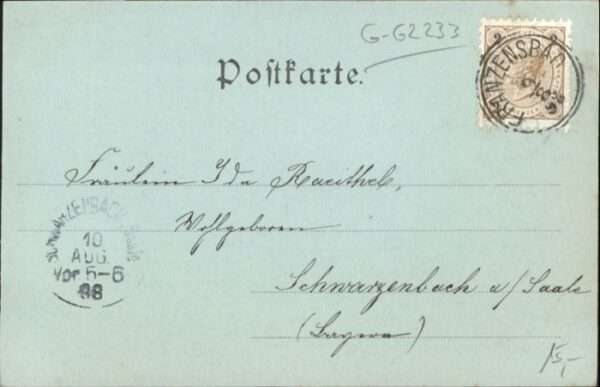 G-G2233
Postkarte.
2
FRANZENSBAD
Fräulein Ida Raithel,
Wohlgeboren
SCHWARZENBACH
10
AUG.
Vor 5-6
98
Schwarzenbach a/Saale
(Bayern)
15,-